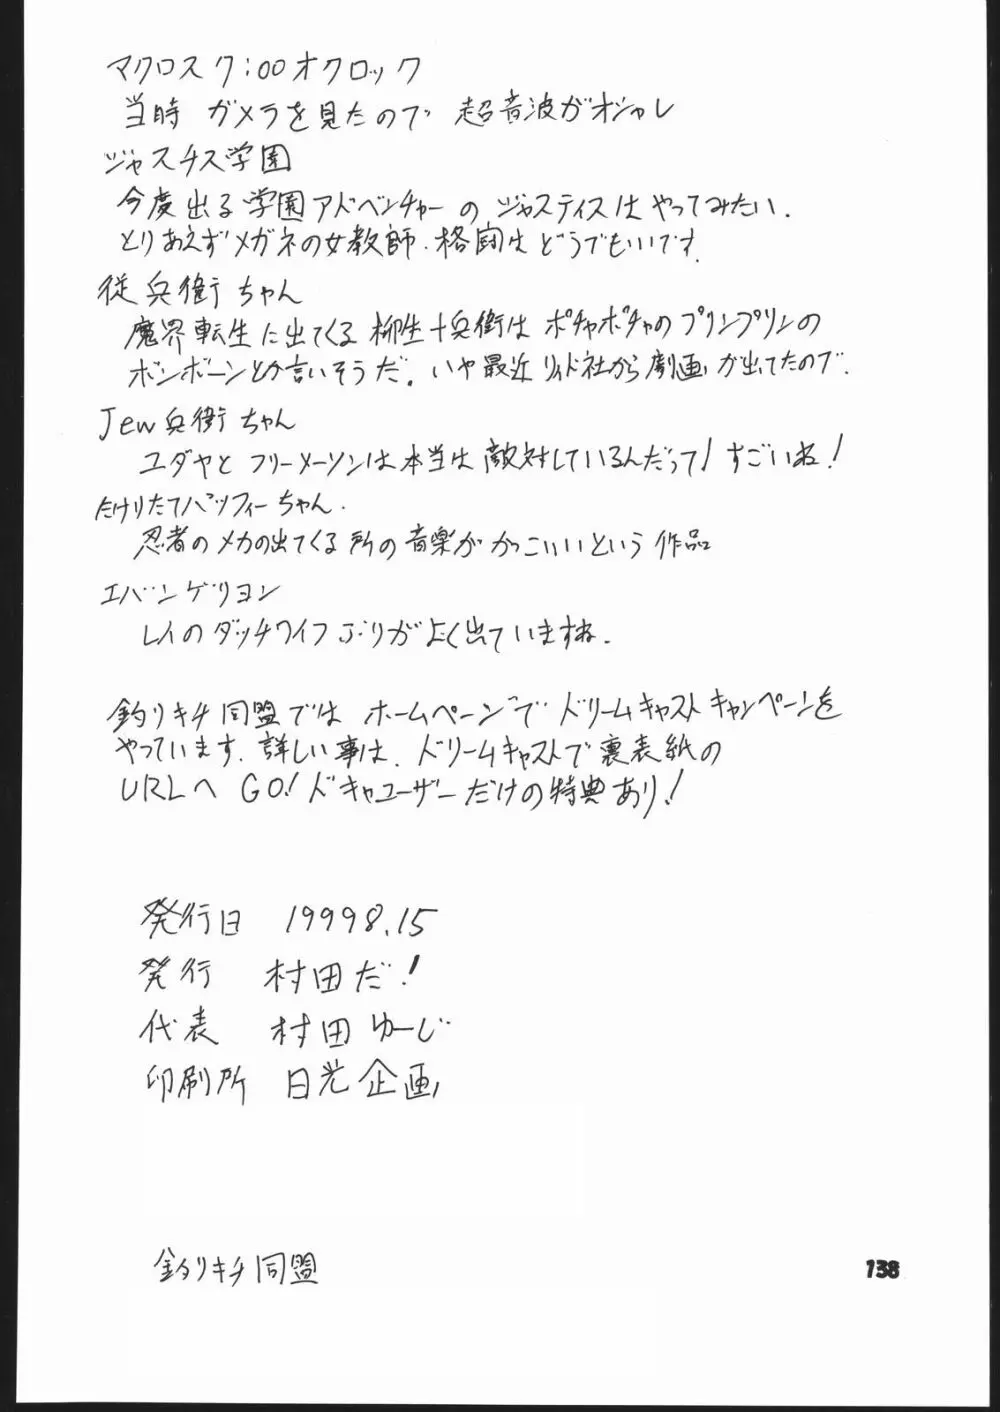 マクロス7:00オクロック
当時 ガメラを見たので 超音波がオシャレ
ジャスチス学園
今度出る学園アドベンチャーの ジャスティスはやってみたい.
とりあえずメガネの女教師.格闘はどうでもいいです.
従兵衛ちゃん
魔界転生に出てくる柳生十兵衛は ポチャポチャのプリンプリンの
ボンボーンとか言いそうだ。いや最近リイド社から劇画が出てたので.
Jew兵衛ちゃん
ユダヤとフリーメーソンは本当は敵対しているんだって!すごいね!
たけりたてバッフィーちゃん.
忍者のメカの出てくる所の音楽がかっこいいという作品
エバンゲリヨン
レイのダッチワイフばりがよく出ていますね.
釣りキチ同盟では ホームページでドリームキャストキャンペーンを
やっています.詳しい事は.ドリームキャストで裏表紙の
URLへ GO!ドキャユーザーだけの特典あり!
発行日 19998.15
発行 村田だ!
代表 村田ゆーじ
印刷所 日光企画
釣りキチ同盟
138